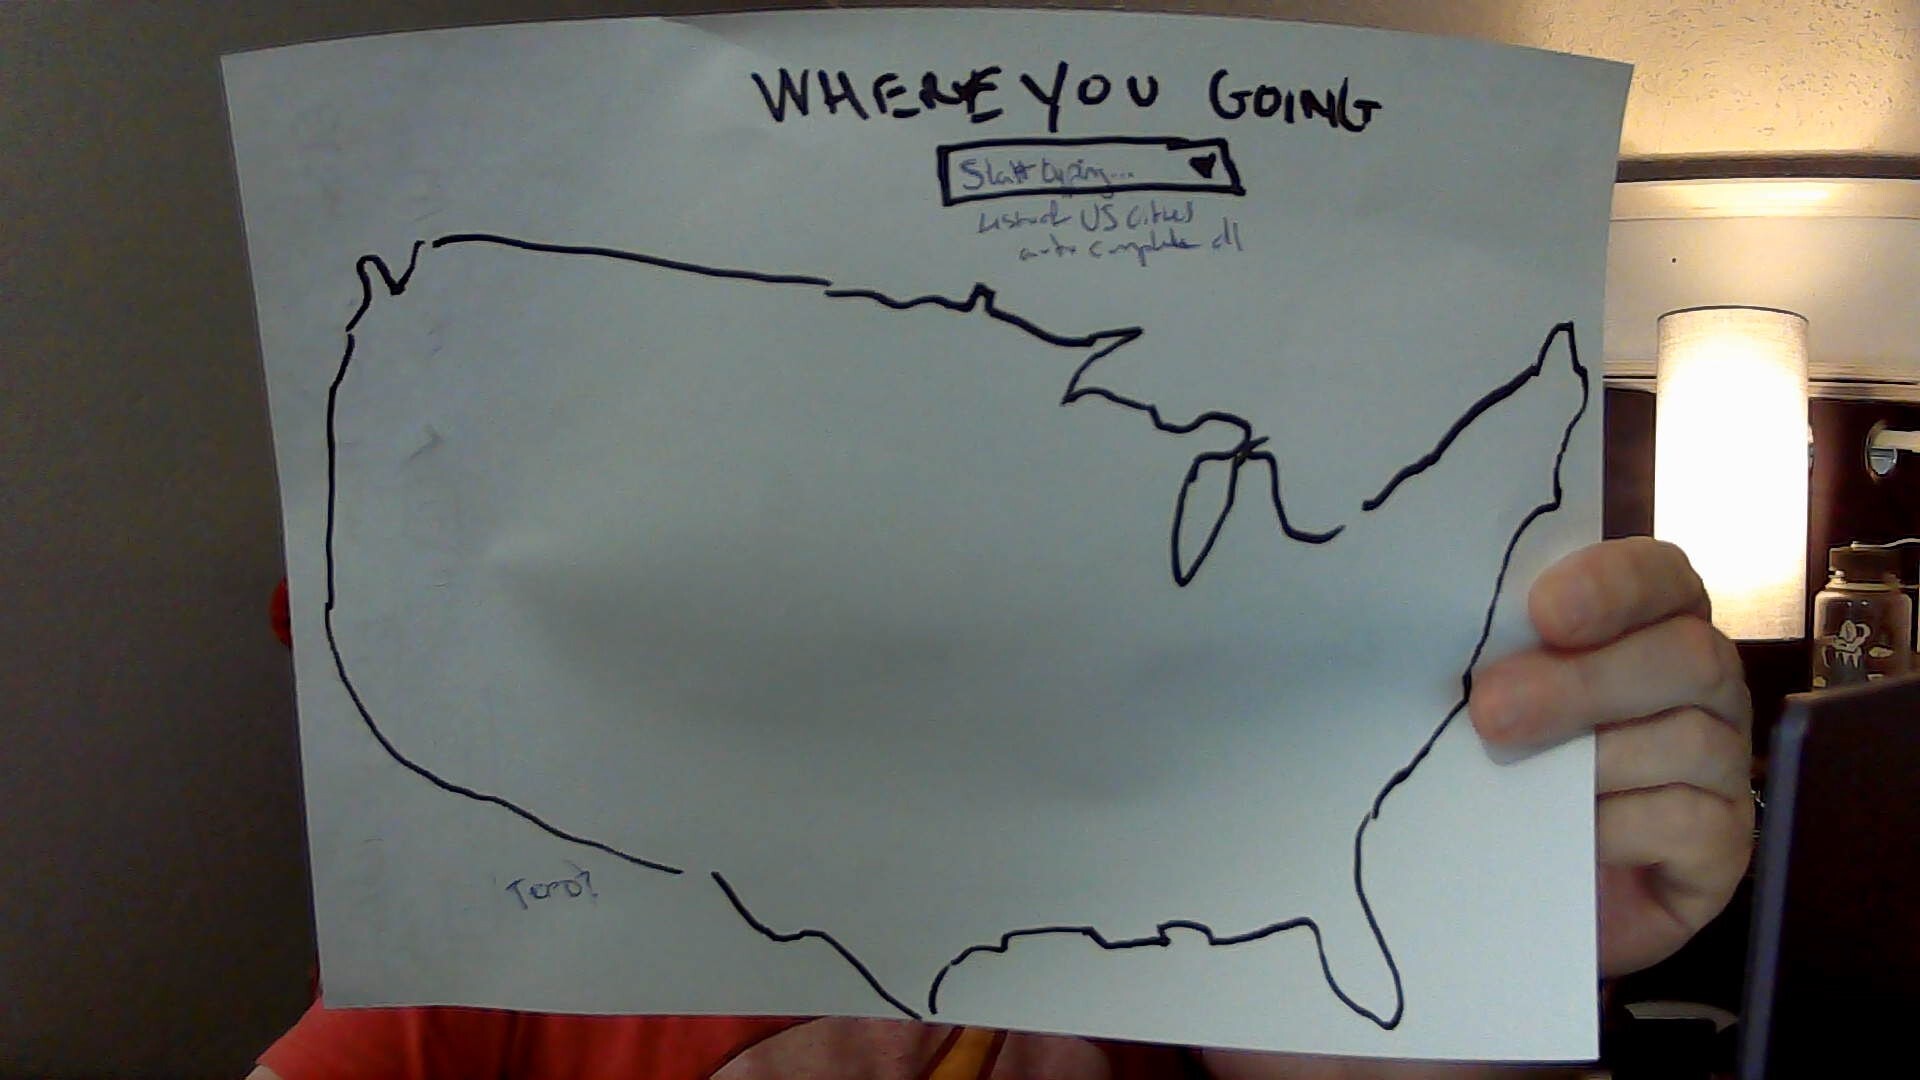 WHERE YOU GOING
Start typing...
List of US Cities
auto complete all
TOPO?